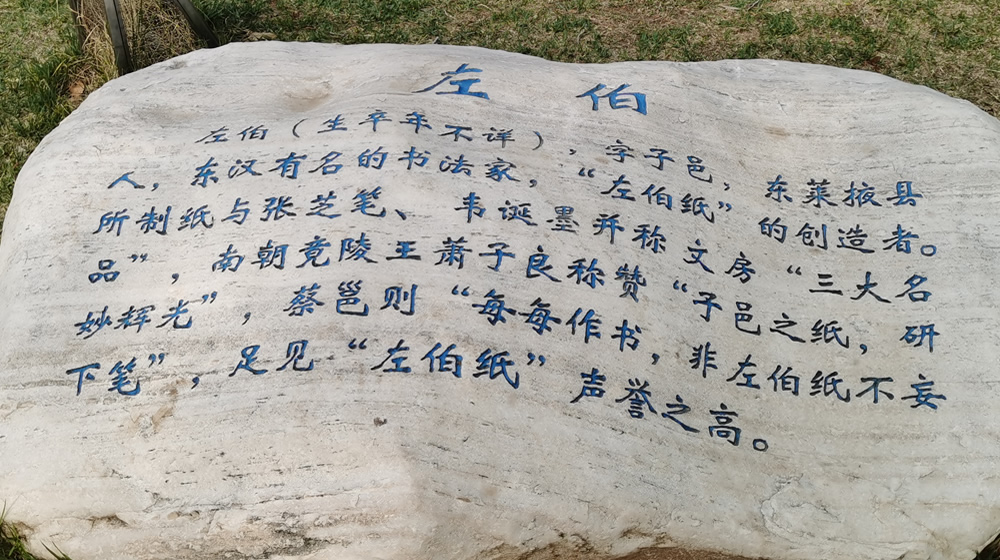 左伯
左伯（生卒年不详），字子邑，东莱掖县
人，东汉有名的书法家，“左伯纸”的创造者。
所制纸与张芝笔、韦诞墨并称文房“三大名
品”，南朝竟陵王萧子良称赞“子邑之纸，研
妙辉光”，蔡邕则“每每作书，非左伯纸不妄
下笔”，足见“左伯纸”声誉之高。